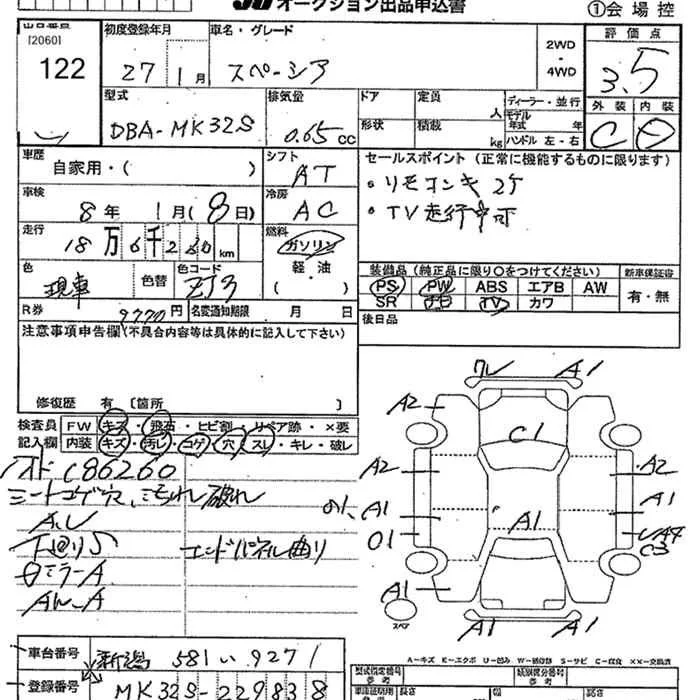 オークション出品申込書
①会場控
出品番号
[2060]
122
初度登録年月
27年1月
車名・グレード
スペーシア
2WD
・
4WD
評価点
3.5
外装 内装
C D
型式
DBA-MK32S
排気量
0.65cc
ドア
形状
定員 人
積載 kg
ディーラー・並行
モデル年式 年
ハンドル 左・右
車歴
自家用・( )
シフト
AT
車検
8年1月(8日)
冷房
AC
走行
18万6千2 km
燃料
ガソリン
軽・油
( )
色
現車
色替
色コード
ZJ3
R券
9770円
名変通知期限 月 日
セールスポイント(正常に機能するものに限ります)
・リモコンキー2ケ
・TV走行中可
装備品(純正品に限り〇をつけてください)
新車保証書
PS PW ABS エアB AW
SR ナビ TV カワ
有・無
後日品
注意事項申告欄(不具合内容等は具体的に記入して下さい)
修復歴 有 [箇所 ]
検査員記入欄
FW キズ・飛石・ヒビ割・リペア跡・×要
内装 キズ・汚レ・コゲ・穴・スレ・キレ・破レ
C86260
シートコゲ穴、汚れ 破れ
下廻りS
エンドパネル曲り
ミラーA
ワレ A1
A2
C1
A2 A2
A1 A1
O1
C3
A1
A1
スペア
A1 A1
A-キズ E-エクボ U-凹み W-補修跡 S-サビ C-腐食 XX-交換済
車台番号
新潟 581 い 9271
登録番号
MK32S-229838
型式指定番号
参考
類別区分番号
参考
長さ
幅
高さ